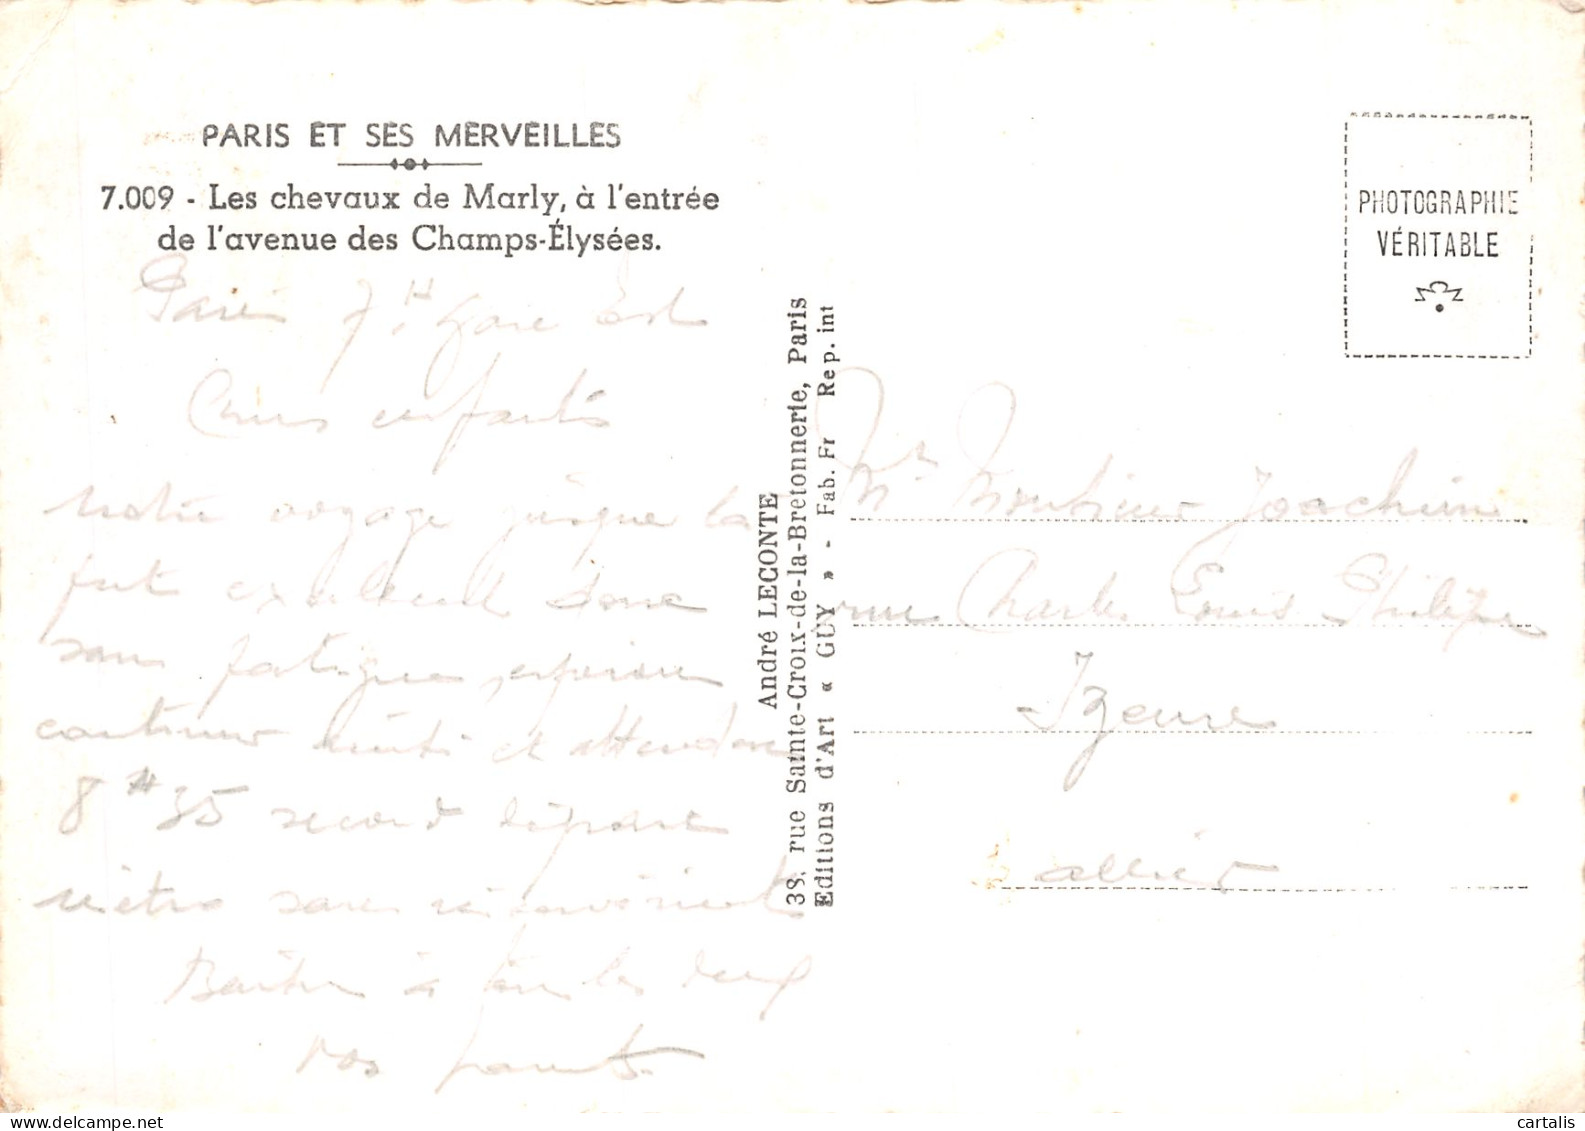 PARIS ET SES MERVEILLES
7.009 - Les chevaux de Marly, à l'entrée
de l'avenue des Champs-Élysées.
Paris 7H gare Est
Chers enfants
notre voyage jusque là
fut excellent donc
sans fatigue, espérons
continuer ainsi et attendons
8H35 second départ
métro sans inconvénient
Baisers à tous les deux
vos parents
André LECONTE
38, rue Sainte-Croix-de-la-Bretonnerie, Paris
Editions d'Art « GUY » - Fab. Fr Rep. int
PHOTOGRAPHIE
VÉRITABLE
Mr Joachim
rue Charles Louis Philippe
Yzeure
allier
cartalis